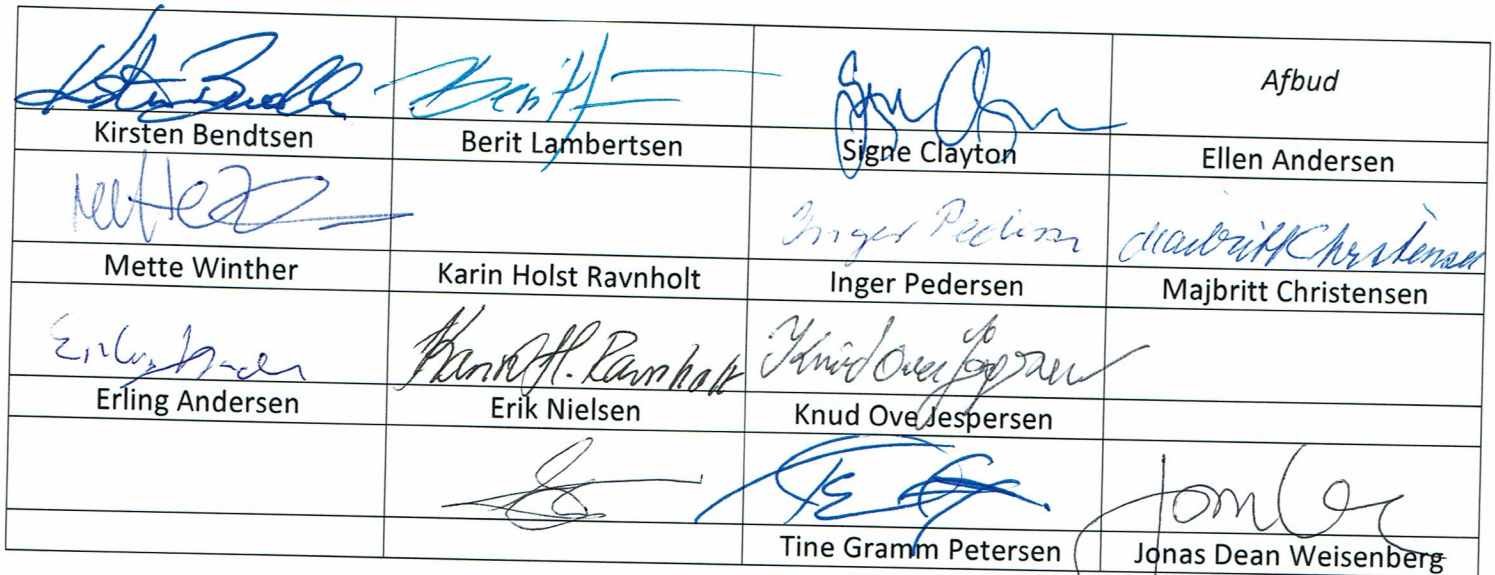 Afbud
Kirsten Bendtsen Berit Lambertsen Signe Clayton Ellen Andersen
Inger Pedersen Majbritt Christensen
Mette Winther Karin Holst Ravnholt Inger Pedersen Majbritt Christensen
Karin H. Ravnholt Knud Ove Jespersen
Erling Andersen Erik Nielsen Knud Ove Jespersen
Tine Gramm Petersen Jonas Dean Weisenberg